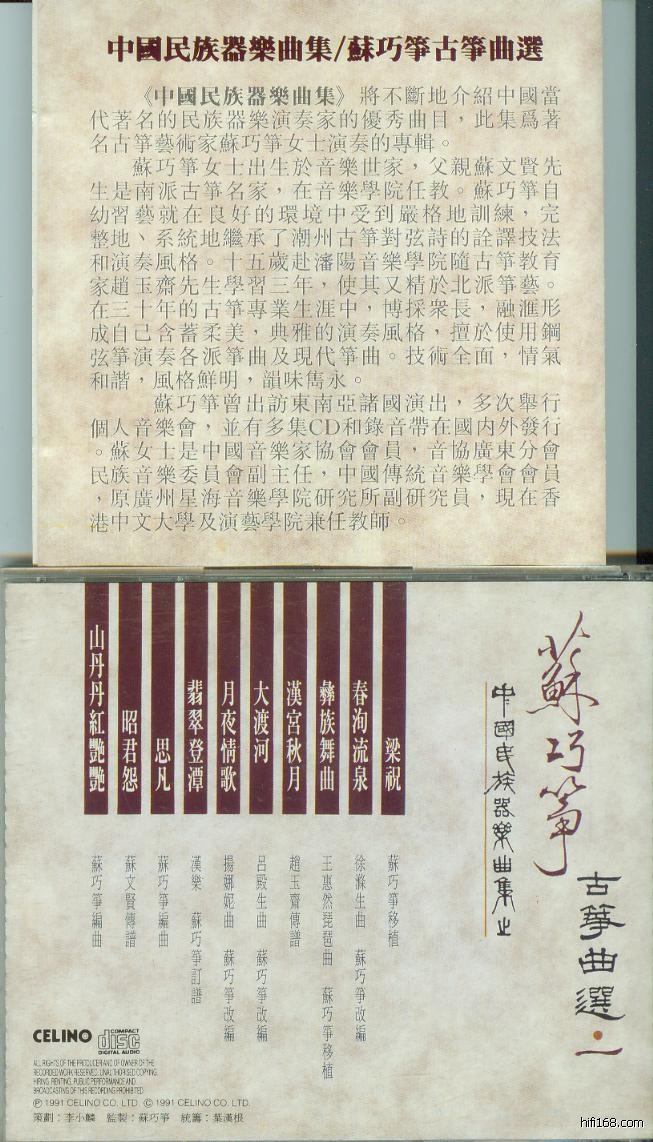 中國民族器樂曲集/蘇巧箏古箏曲選
《中國民族器樂曲集》將不斷地介紹中國當
代著名的民族器樂演奏家的優秀曲目，此集爲著
名古箏藝術家蘇巧箏女士演奏的專輯。
蘇巧箏女士出生於音樂世家，父親蘇文賢先
生是南派古箏名家，在音樂學院任教。蘇巧箏自
幼習藝就在良好的環境中受到嚴格地訓練，完
整地、系統地繼承了潮州古箏對弦詩的詮譯技法
和演奏風格。十五歲赴瀋陽音樂學院隨古箏教育
家趙玉齋先生學習三年，使其又精於北派箏藝。
在三十年的古箏專業生涯中，博採衆長，融滙形
成自己含蓄柔美，典雅的演奏風格，擅於使用鋼
弦箏演奏各派箏曲及現代箏曲。技術全面，情氣
和諧，風格鮮明，韻味雋永。
蘇巧箏曾出訪東南亞諸國演出，多次舉行
個人音樂會，並有多集CD和錄音帶在國内外發行
。蘇女士是中國音樂家協會會員，音協廣東分會
民族音樂委員會副主任，中國傳統音樂學會會員
，原廣州星海音樂學院研究所副研究員，現在香
港中文大學及演藝學院兼任教師。
蘇巧箏
古箏曲選·一
中國民族器樂曲集之
梁祝
蘇巧箏移植
春洵流泉
徐滌生曲 蘇巧箏改編
彝族舞曲
王惠然琵琶曲 蘇巧箏移植
漢宮秋月
趙玉齋傳譜
大渡河
呂殿生曲 蘇巧箏改編
月夜情歌
揚娜妮曲 蘇巧箏改編
翡翠登潭
漢樂 蘇巧箏訂譜
思凡
蘇巧箏編曲
昭君怨
蘇文賢傳譜
山丹丹紅艷艷
蘇巧箏編曲
CELINO COMPACT disc DIGITAL AUDIO
ALL RIGHTS OF THE PRODUCER AND OF OWNER OF THE
RECORDED WORK RESERVED. UNAUTHORISED COPYING,
HIRING, RENTING, PUBLIC PERFORMANCE AND
BROADCASTING OF THIS RECORDING PROHIBITED
℗ 1991 CELINO CO. LTD. © 1991 CELINO CO. LTD.
策劃：李小麟 監製：蘇巧箏 統籌：葉漢根
hifi168.com